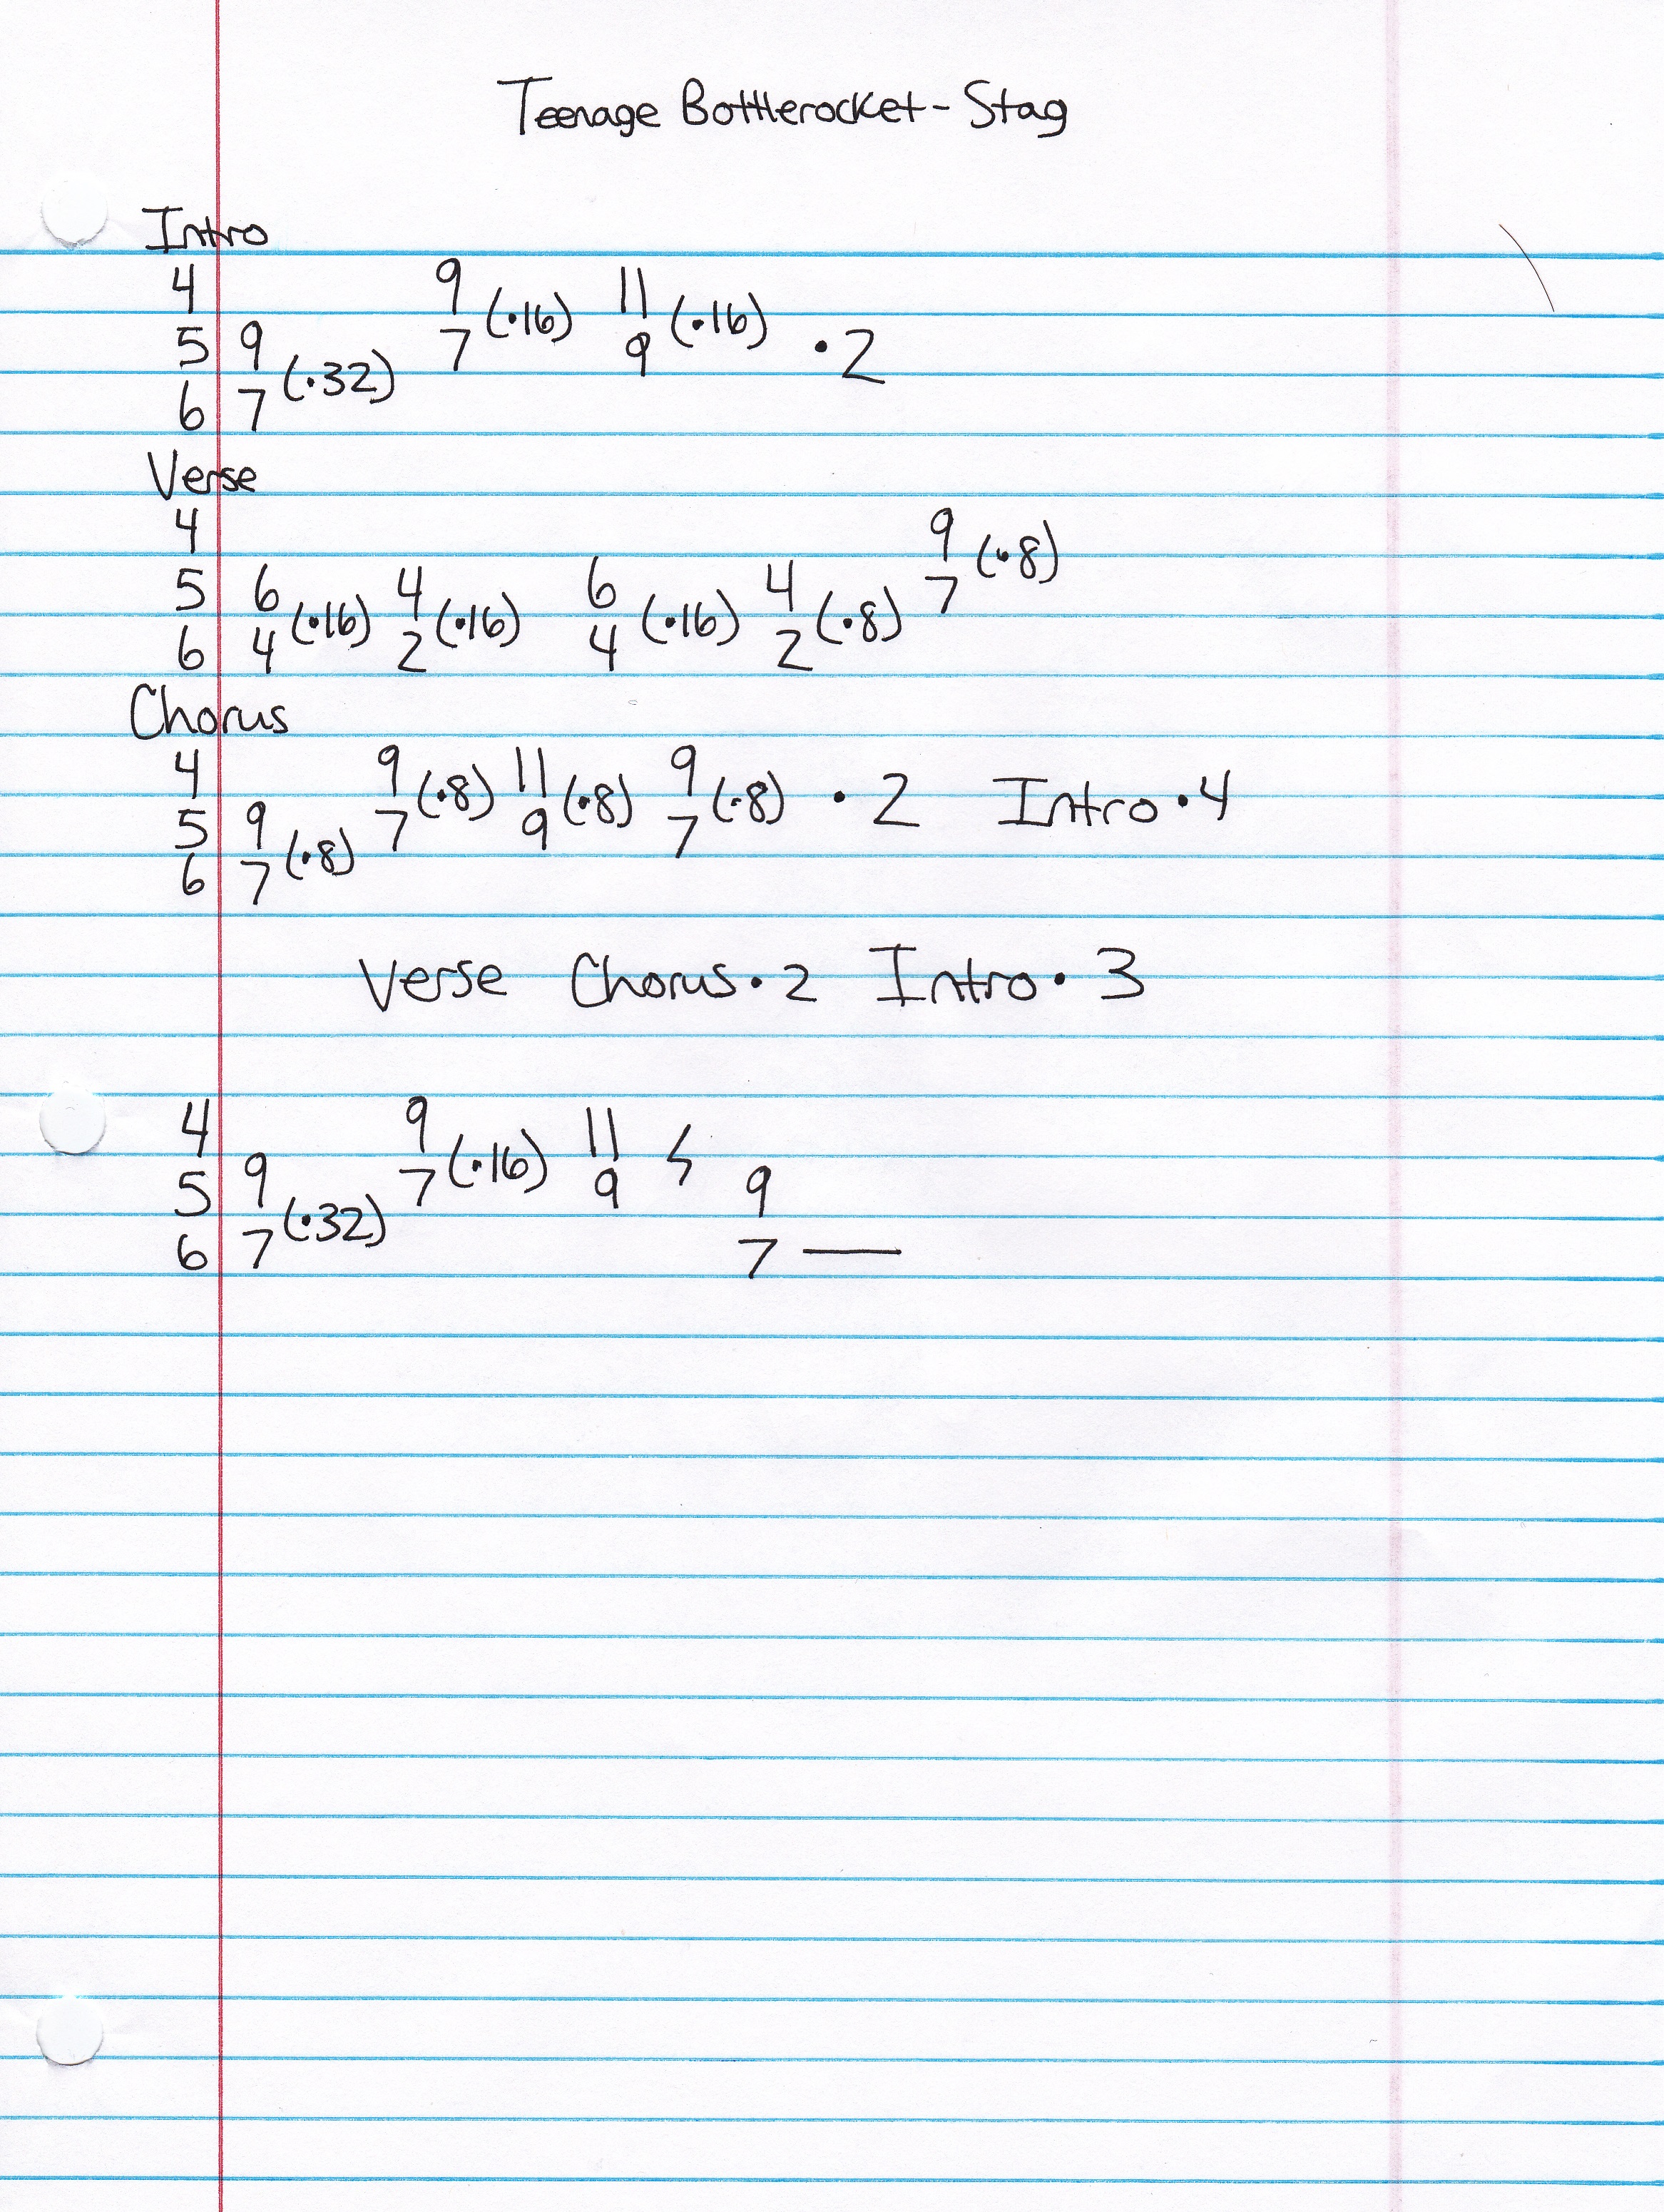 Teenage Bottlerocket - Stag
Intro
4 9 (•16) 11 (•16)
5 9 7 9 • 2
6 7 (•32)
Verse
4 9 (•8)
5 6 4 6 4 7
6 4 (•16) 2 (•16) 4 (•16) 2 (•8)
Chorus
4 9 (•8) 11 (•8) 9 (•8) • 2 Intro • 4
5 9 7 9 7
6 7 (•8)
Verse Chorus • 2 Intro • 3
4 9 11
5 9 7 (•16) 9 9
6 7 (•32) 7 —